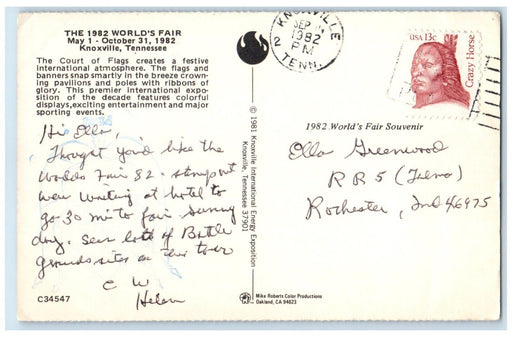 THE 1982 WORLD'S FAIR
May 1 - October 31, 1982
Knoxville, Tennessee
The Court of Flags creates a festive
international atmosphere. The flags and
banners snap smartly in the breeze crown-
ing pavilions and poles with ribbons of
glory. This premier international expo-
sition of the decade features colorful
displays, exciting entertainment and major
sporting events.
Hi Ella,
Thought you'd like the
Worlds Fair 82 - stamp out
were waiting at hotel to
go 30 mi to fair Sunny
day. Seen lots of Battle
grounds sites on our tour
C W
Helen
C34547
© 1981 Knoxville International Energy Exposition
Knoxville, Tennessee 37901
Mike Roberts Color Productions
Oakland, CA 94623
KNOXVILLE
SEP
1982
PM
TENN.
2
USA 13c
Crazy Horse
1982 World's Fair Souvenir
Ella Greenwood
R R 5
Rochester, Ind 46975